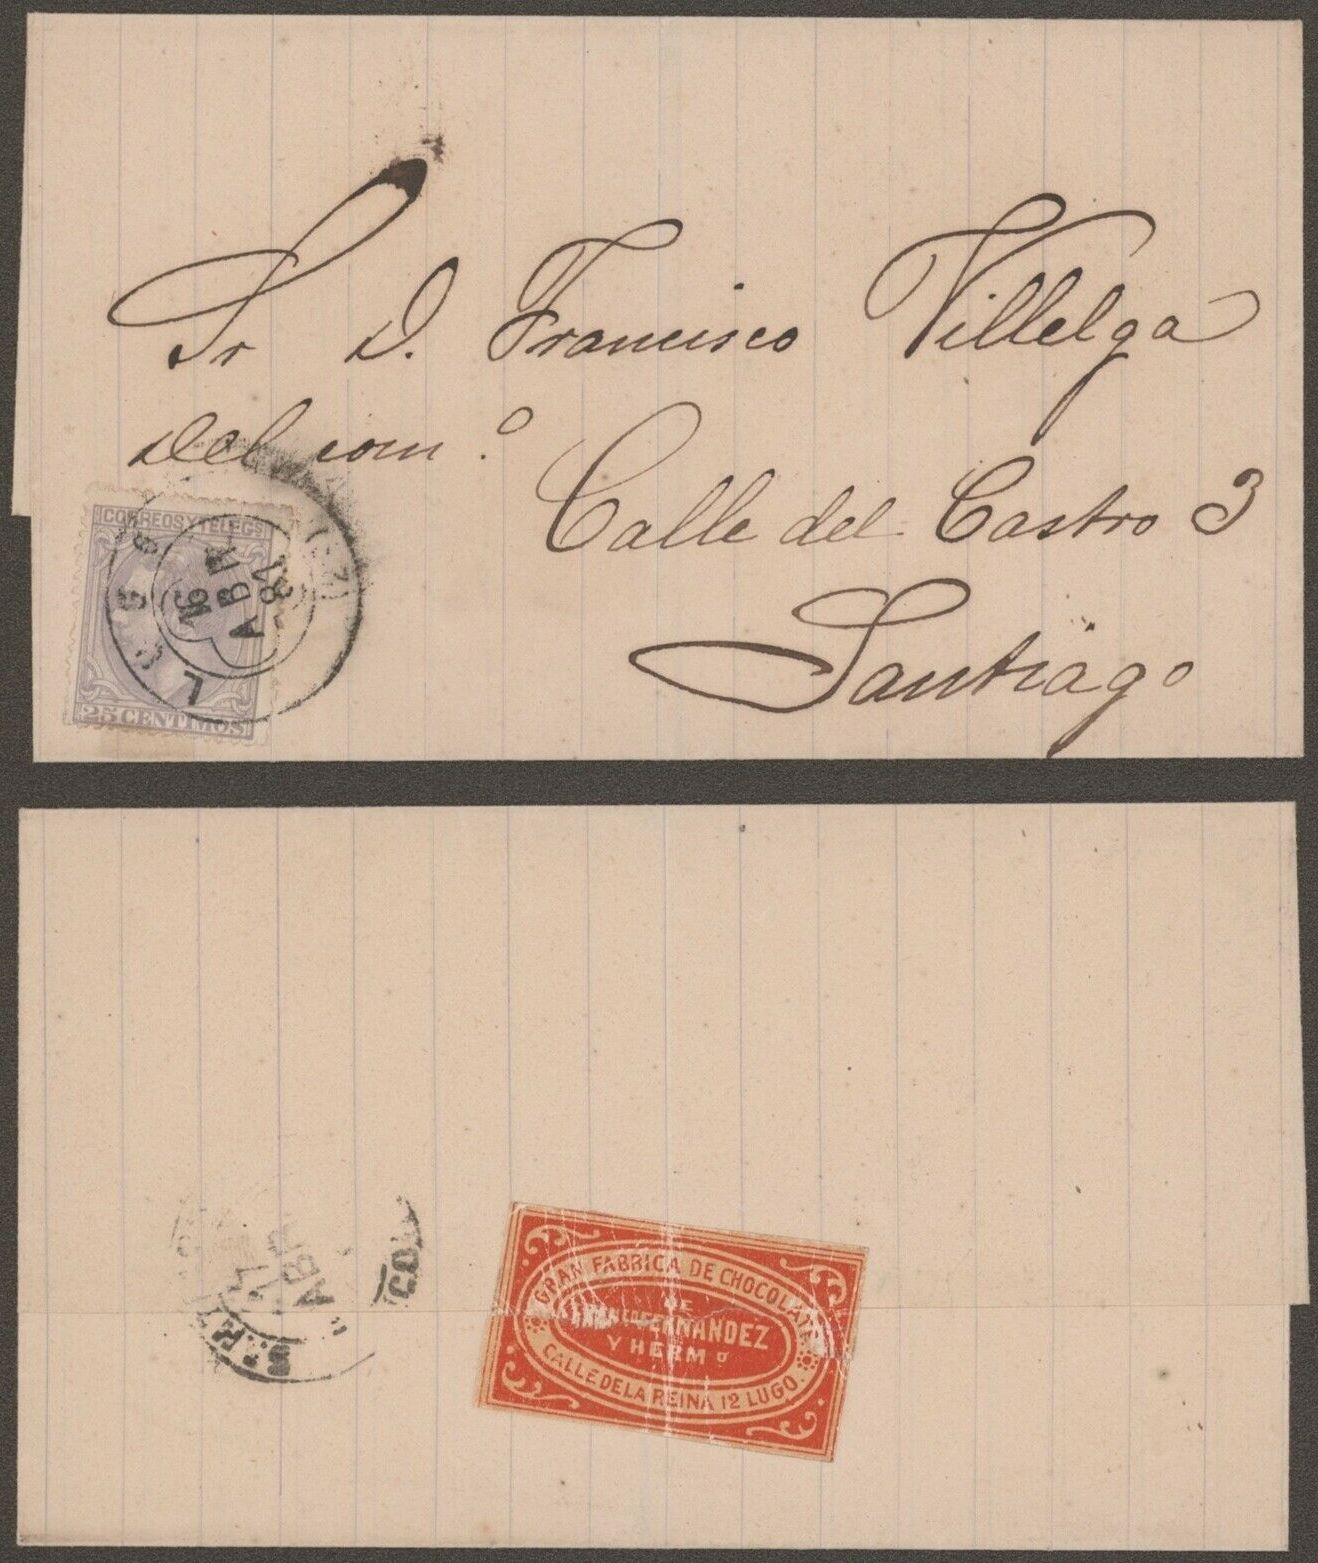 Sr D. Francisco Villelga
Del com.º
Calle del Castro 3
Santiago
CORREOS Y TELEGS
25 CENTIMOS
LUGO
16
ABR
81
17
ABR
GRAN FABRICA DE CHOCOLATE
DE
FERNANDEZ
Y HERMº
CALLE DE LA REINA 12 LUGO.